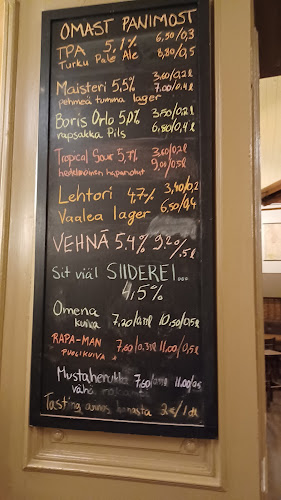 OMAST PANIMOST
TPA 5,1% 6,50/0,3
Turku Pale Ale 8,20/0,5
Maisteri 5,5% 3,60/0,2l
pehmeä tumma lager 7,00/0,4l
Boris Orlo 5,0% 3,50/0,2l
rapsakka Pils 6,80/0,4l
Tropical Sour 5,7% 3,80/0,2l
hedelmäinen hapanolut 9,00/0,5l
Lehtori 4,7% 3,40/0,2
Vaalea lager 6,50/0,4
VEHNÄ 5.4% 9.20/.5l
Sit viäl SIIDEREI...
4,5%
Omena 7,20/0,3l 10,50/0,5l
kuiva
RAPA-MAN 7,60/0,3l 11,00/0,5l
PUOLIKUIVA
Mustaherukka 7,60/0,3l 11,00/0,5
vähä
Tasting annos hanasta 2€/1dl